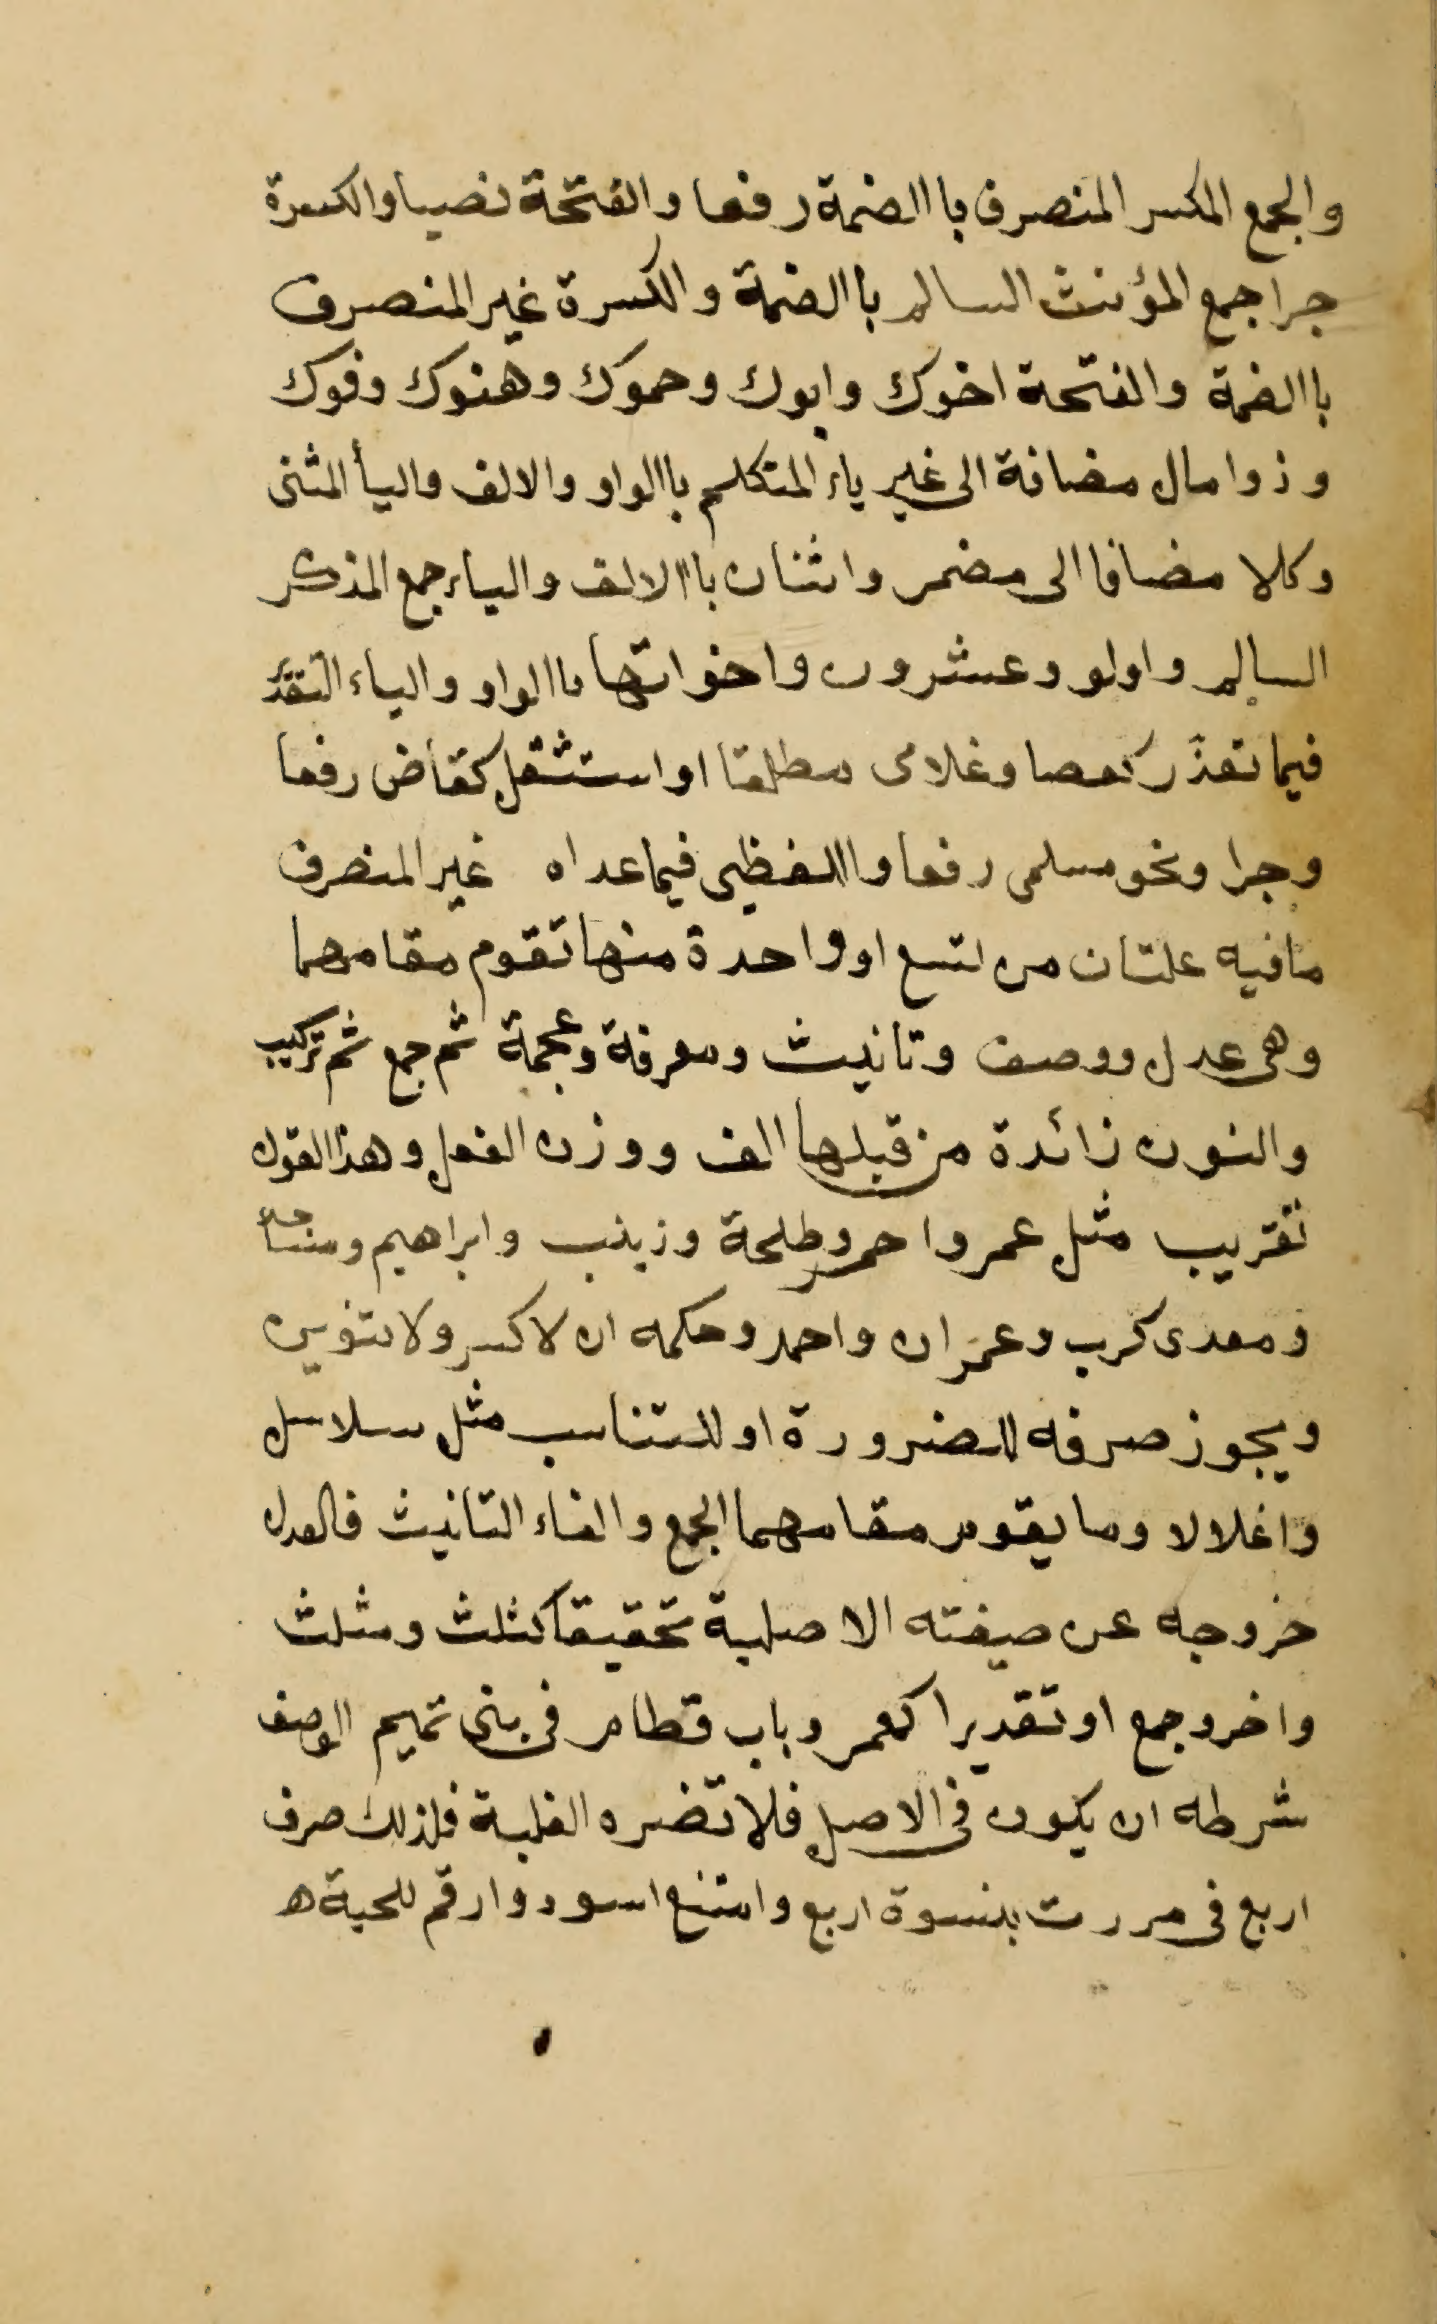 والجمع المكسر المنصرف باالضمة رفعا والفتحة نصبا والكسرة
جرا جمع المؤنث السالم باالضمة والكسرة غير المنصرف
باالضمة والفتحة اخوك وابوك وحموك وهنوك وفوك
وذوا مال مضافة الى غير ياء المتكلم باالواو والالف واليأ المثنى
وكلا مضافا الى مضمر واثنان باالالف والياء جمع المذكر
السالم واولو وعشرون واخواتها باالواو والياء
فيما تعذّر كعصا وغلامى مطلقا او استثقل كقاض رفعا
وجرا ونحو مسلمى رفعا واللفظى فيما عداه غير المنصرف
مافيه علتان من تسع او واحدة منها تقوم مقامهما
وهى عدل ووصف وتانيث ومعرفة وعجمة ثم جمع ثم تركيب
والنون زائدة من قبلها الف ووزن الفعل وهذا القول
تقريب مثل عمر واحمر وطلحة وزينب وابراهيم ومساجد
ومعدى كرب وعمران واحمد وحكمه ان لا كسر ولا تنوين
ويجوز صرفه للضرورة او للتناسب مثل سلاسل
واغلالا وما يقوم مقامهما الجمع والفاء التانيث فالعدل
خروجه عن صيغته الاصلية تحقيقا كثلث ومثلث
واخر وجمع او تقديرا كعمر وباب قطام فى بنى تميم الوصف
شرطه ان يكون فى الاصل فلا تضره الغلبة فلذلك صرف
اربع فى مررت بنسوة اربع وامتنع اسود وارقم للحية ه